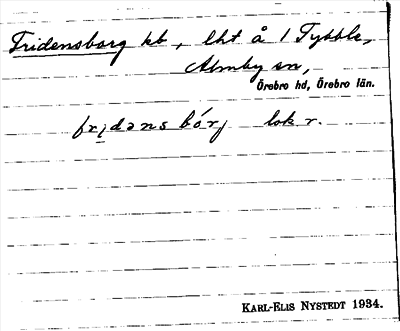 Fridensborg kb, lht å 1 Tybble,
Almby sn,
Örebro hd, Örebro län.
fridənsbórj lok r.
KARL-ELIS NYSTEDT 1934.